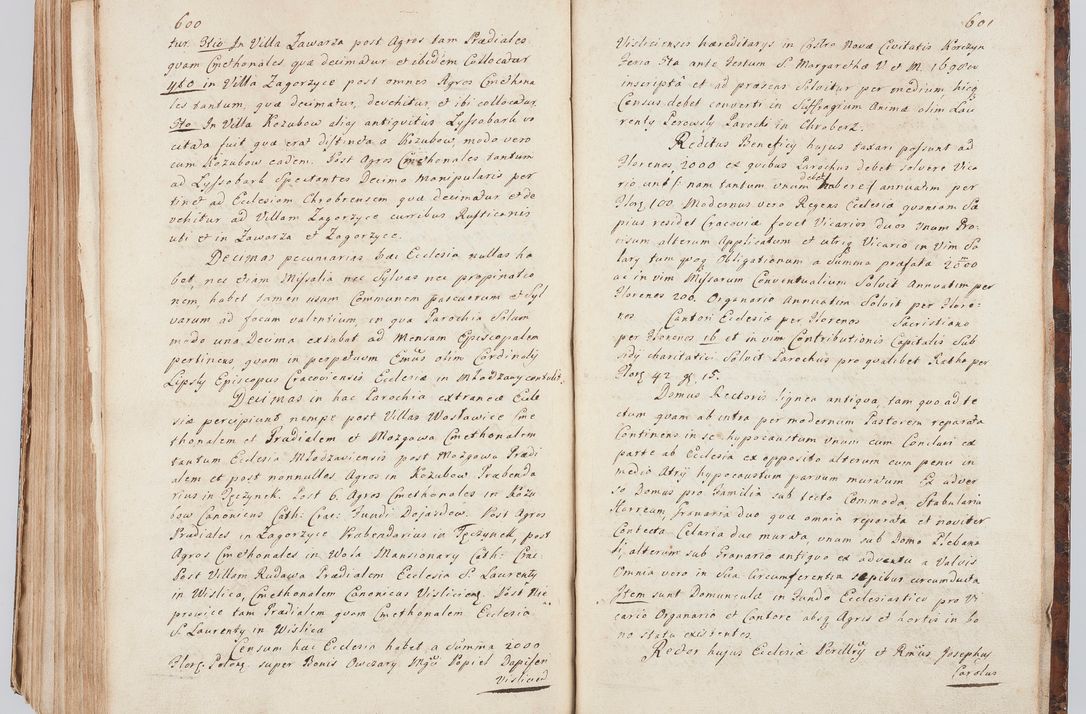 600
tur. 3tio In Villa Zawarza post Agros tam Prædiales
quam Cmethonales quæ decimatur et ibidem Collocatur
4to in Villa Zagorzyce post omnes Agros Cmethona
les tantum, quæ decimatur, devehitur, et ibi collocatur
5to In Villa Kozubow alias antiquitus Lyssobark vo
citata fuit quæ erat distincta a Kozubow, modo vero
cum Kozubow eadem. Post Agros Cmethonales tantum
ad Lyssobark Spectantes Decima Manipularis per
tinet ad Ecclesiam Chrobrensem quæ decimatur et de
vehitur ad Villam Zagorzyce curribus Rusticanis
uti et in Zawarza et Zagorzyce.
Decimas pecuniarias hæc Ecclesia nullas ha
bet, nec etiam Missalia nec Sylvas nec propinatio
nem, habet tamen usum Communem pascuorum et Syl
varum ad focum valentium, in qua Parochia Solum
modo una Decima extabat ad Mensam Episcopalem
pertinens quam in perpetuum Emus olim Cardinalis
Lipsky Episcopus Cracoviensis Ecclesiæ in Młodzawy contulit.
Decimas in hac Parochia extraneæ Eccle
siæ percipiunt nempe post Villas Wosławice Cme
thonalem et Prædialem et Mozgawa Cmethonalem
tantum Ecclesia Młodzaviensis post Mozgowa Prædi
alem et post nonnullos Agros in Kozubow Præbenda
rius in Tęczynek. Post 6. Agros Cmethonales in Kozu
bow Canonicus Cath: Crac: Fundi Dojazdow. Post Agros
Prædiales in Zagorzyce Præbendarius in Tęczynek, post
Agros Cmethonales in Wola Mansionary Cath: Crac:
Post Villam Rudawa Prædialem Ecclesia S. Laurenty
in Wislica, Cmethonalem Canonicus Visliciens. Post Nie
prowice tam Prædialem quam Cmethonalem Ecclesia
S. Laurenty in Wislica
Censum hæc Ecclesia habet a Summa 2000
Flor. Polon. super Bonis Owczary Mgci Popiel Dapiferi
Vislicien
601
Visliciensis hæreditarys in Castro Nova Civitatis Korczyn
Feria 3ta ante Festum S. Margarethæ V et M. 1690
inscripta et ad præsens Solvitur per medium, hicq
Census debet converti in Suffragium Animæ olim Lau
renty Parochi in Chroberz.
Reditus Beneficy hujus taxari possunt ad
Florenos 2000 ex quibus Parochus debet solvere Vica
rio uni /: nam tantum unum debet habere :/ annuatim per
Flor. 100. Modernus vero Regens Ecclesia quoniam Sæ
pius residet Cracoviæ fovet Vicarios duos Unum Pro
visum alterum Applicatum et utriq Vicario in Vim Sa
lary tum quoq Obligationum a Summa præfata 2000
ac in vim Missarum Conventualium Solvit Annuatim per
Florenos 200. Organario Annuatim Solvit per Flore
nos Cantori Ecclesiæ per Florenos Sacristiano
per Florenos 16 et in vim Contributionis Capitalis Sub
sidy charitativi Solvit Parochus pro qualibet Ratha per
Flor. 42 gr. 15.
Domus Rectoris lignea antiqua tam quo ad te
ctum quam ab intra per modernum Pastorem reparata
Continens in se hypocaustum unum cum Conclavi ex
parte ab Ecclesia ex opposito alterum cum penu in
medio Atrij hypocaustum parvum muratum Ex adver
so Domus pro Familia sub tecto Commoda, Stabularia
Horreum, Granaria duo quæ omnia reparata et noviter
Contecta Celaria duo murata, unum sub Domo Plebana
li, alterum sub Granario antiquo ex adventu a Valvis
Omnia vero in Sua Circumferentia sepibus circumducta
Item sunt Domunculæ in Fundo Ecclesiastico pro Vi
cario Organario et Cantore absq Agris et hortis in bo
no statu existentes
Rector hujus Ecclesiæ Perillris et Rmus Josephus
Carolus